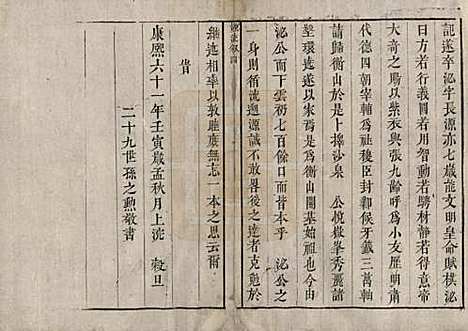 記遂卒泌字長源亦七歲能文明皇命賦棋泌
曰方若行義圓若用智動若騁材靜若得意帝
大奇之賜以紫衣與張九齡呼爲小友歷明肅
代德四朝宰輔爲社稷臣封鄴候牙籤三萬軸
請歸衡山於是十擇沙泉 公悅嶽峯秀麗諸
皇環遶遂以家焉是爲衡山開基始祖也 自
泌公而下雲礽七百餘口而皆本乎 泌公之
一身則循流遡源誠不敢畧後之達者克勉於
繼述相率以敦睦庶無忘一本之思云爾
旹
康熙六十一年壬寅歲孟秋月上浣 穀旦
二十九世孫之勲敬書